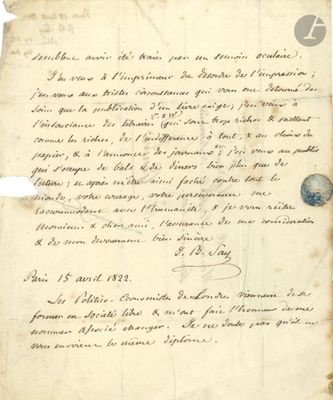 semblent avoir été tracés par un témoin oculaire.
J'en veux à l'imprimeur du désordre de l'impression ;
j'en veux aux tristes circonstances qui vous ont détourné des
soins que la publication d'un livre exige ; j'en veux à
l'insouciance des libraires (qui sont trop riches & mettent
comme les riches, de l'indifférence à tout, & au choix du
papier, & à l'annonce des journaux &c.) j'en veux au public
qui s'occupe de bals & de dîners bien plus que de
lecture ; et après m'être ainsi fâché contre tout le
monde, votre courage, votre persévérance me
raccommodent avec l'humanité, & je vous réitère
Monsieur & cher ami, l'assurance de ma considération
& de mon dévouement bien sincère
J. B. Say
Paris 15 avril 1822.
Les Politico-Economistes de Londres viennent de se
former en Société libre & m'ont fait l'honneur de me
nommer associé étranger. Je ne doute pas qu'ils ne
vous envoient le même diplôme.